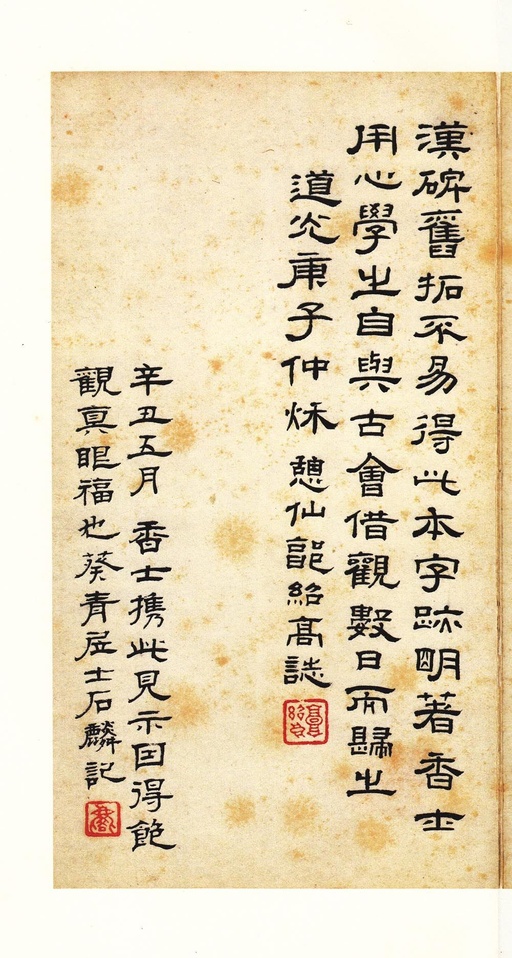 漢碑舊拓不易得此本字跡明著香士
用心學之自與古會借觀數日而歸之
道光庚子仲秌 憩仙郭紹高誌
辛丑五月 香士攜此見示因得飽
觀真眼福也葵青居士石麟記